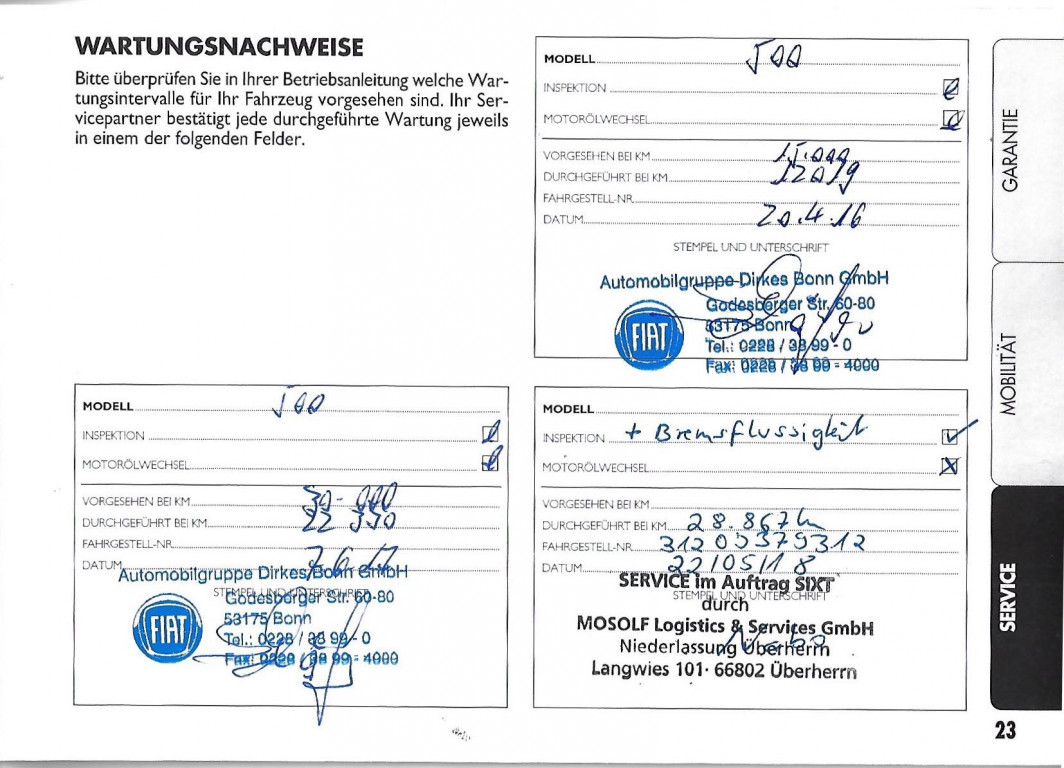 WARTUNGSNACHWEISE
Bitte überprüfen Sie in Ihrer Betriebsanleitung welche War-
tungsintervalle für Ihr Fahrzeug vorgesehen sind. Ihr Ser-
vicepartner bestätigt jede durchgeführte Wartung jeweils
in einem der folgenden Felder.
MODELL 500
INSPEKTION
MOTORÖLWECHSEL
VORGESEHEN BEI KM 15.000
DURCHGEFÜHRT BEI KM 12019
FAHRGESTELL-NR.
DATUM 20.4.16
STEMPEL UND UNTERSCHRIFT
Automobilgruppe-Dirkes Bonn GmbH
Godesberger Str. 60-80
53175 Bonn
FIAT
Tel.: 0228 / 38 99 - 0
Fax: 0228 / 38 99 - 4000
MODELL 500
INSPEKTION
MOTORÖLWECHSEL
VORGESEHEN BEI KM 30-000
DURCHGEFÜHRT BEI KM 22 350
FAHRGESTELL-NR.
DATUM 7/6 17
Automobilgruppe Dirkes Bonn GmbH
STEMPEL UND UNTERSCHRIFT
Godesberger Str. 60-80
53175 Bonn
FIAT
Tel.: 0228 / 38 99 - 0
Fax: 0228 / 38 99 - 4000
MODELL
INSPEKTION + Bremsflüssigkeit
MOTORÖLWECHSEL
VORGESEHEN BEI KM
DURCHGEFÜHRT BEI KM 28.867 km
FAHRGESTELL-NR. 31205379312
DATUM 22105118
SERVICE im Auftrag SIXT
STEMPEL UND UNTERSCHRIFT
durch
MOSOLF Logistics & Services GmbH
Niederlassung Überherrn
Langwies 101· 66802 Überherrn
GARANTIE
MOBILITÄT
SERVICE
23